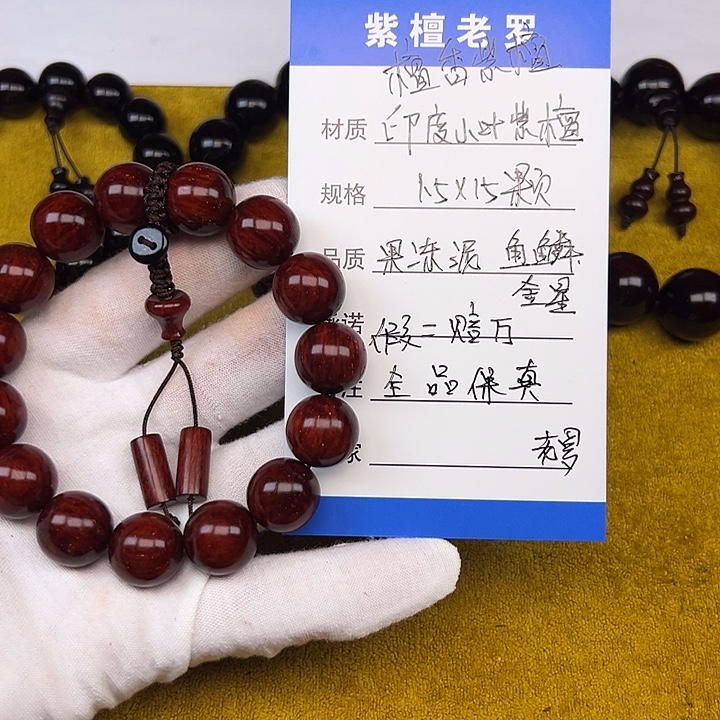 紫檀老罗
檀香紫檀
材质 印度小叶紫檀
规格 1.5X15颗
品质 果冻泥 鱼鳞
金星
诺 假一赔万
注 全品保真
家 老罗